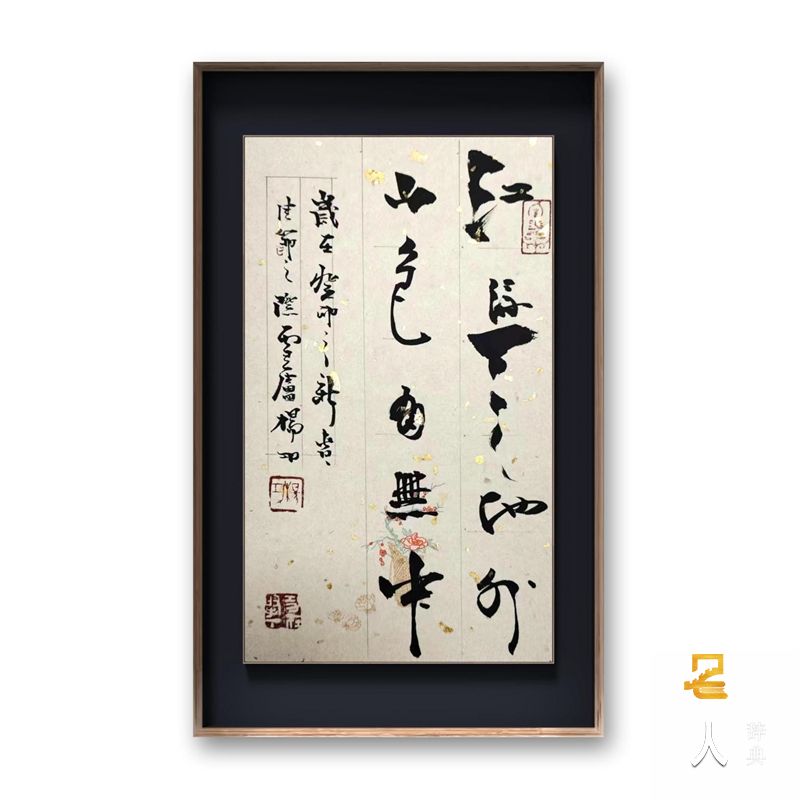 江流天地外
山色有無中
歲在癸卯之新春
佳節之際雲廬楊
人
辞典